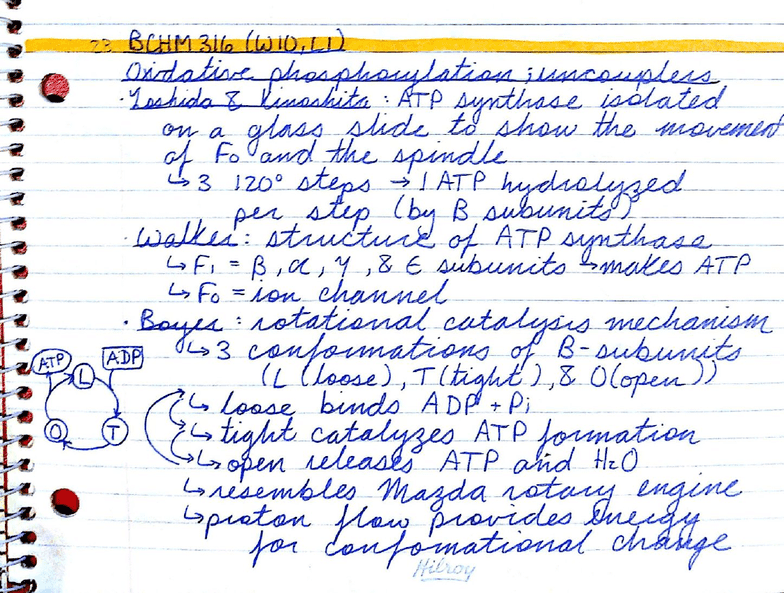 23 BCHM 316 (W10, L1)
Oxidative phosphorylation ; uncouplers
· Yoshida & Kinoshita : ATP synthase isolated
on a glass slide to show the movement
of F₀ and the spindle
↳ 3 120° steps → 1 ATP hydrolyzed
per step (by B subunits)
· Walker : structure of ATP synthase
↳ F₁ = β, α, γ, & ε subunits → makes ATP
↳ F₀ = ion channel
· Boyer : rotational catalysis mechanism
↳ 3 conformations of B-subunits
(L (loose), T (tight), & O (open))
ATP ADP
L
O T
↳ loose binds ADP + Pi
↳ tight catalyzes ATP formation
↳ open releases ATP and H₂O
↳ resembles Mazda rotary engine
↳ proton flow provides energy
for confomational change
Hilroy